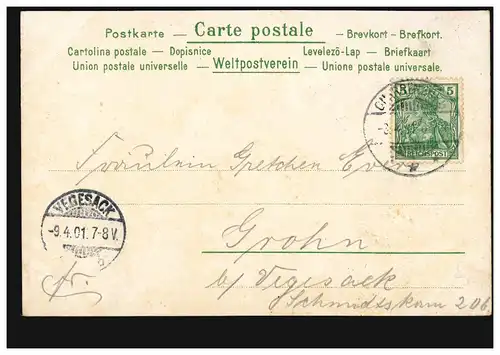 Postkarte — Carte postale — Brevkort - Brefkort.
Cartolina postale — Dopisnice Levelező-Lap — Briefkaart
Union postale universelle — Weltpostverein — Unione postale universale.
5
REICHSPOST
Fräulein Gretchen
VEGESACK
-9.4.01.7-8V.
Grohn
b/ Vegesack